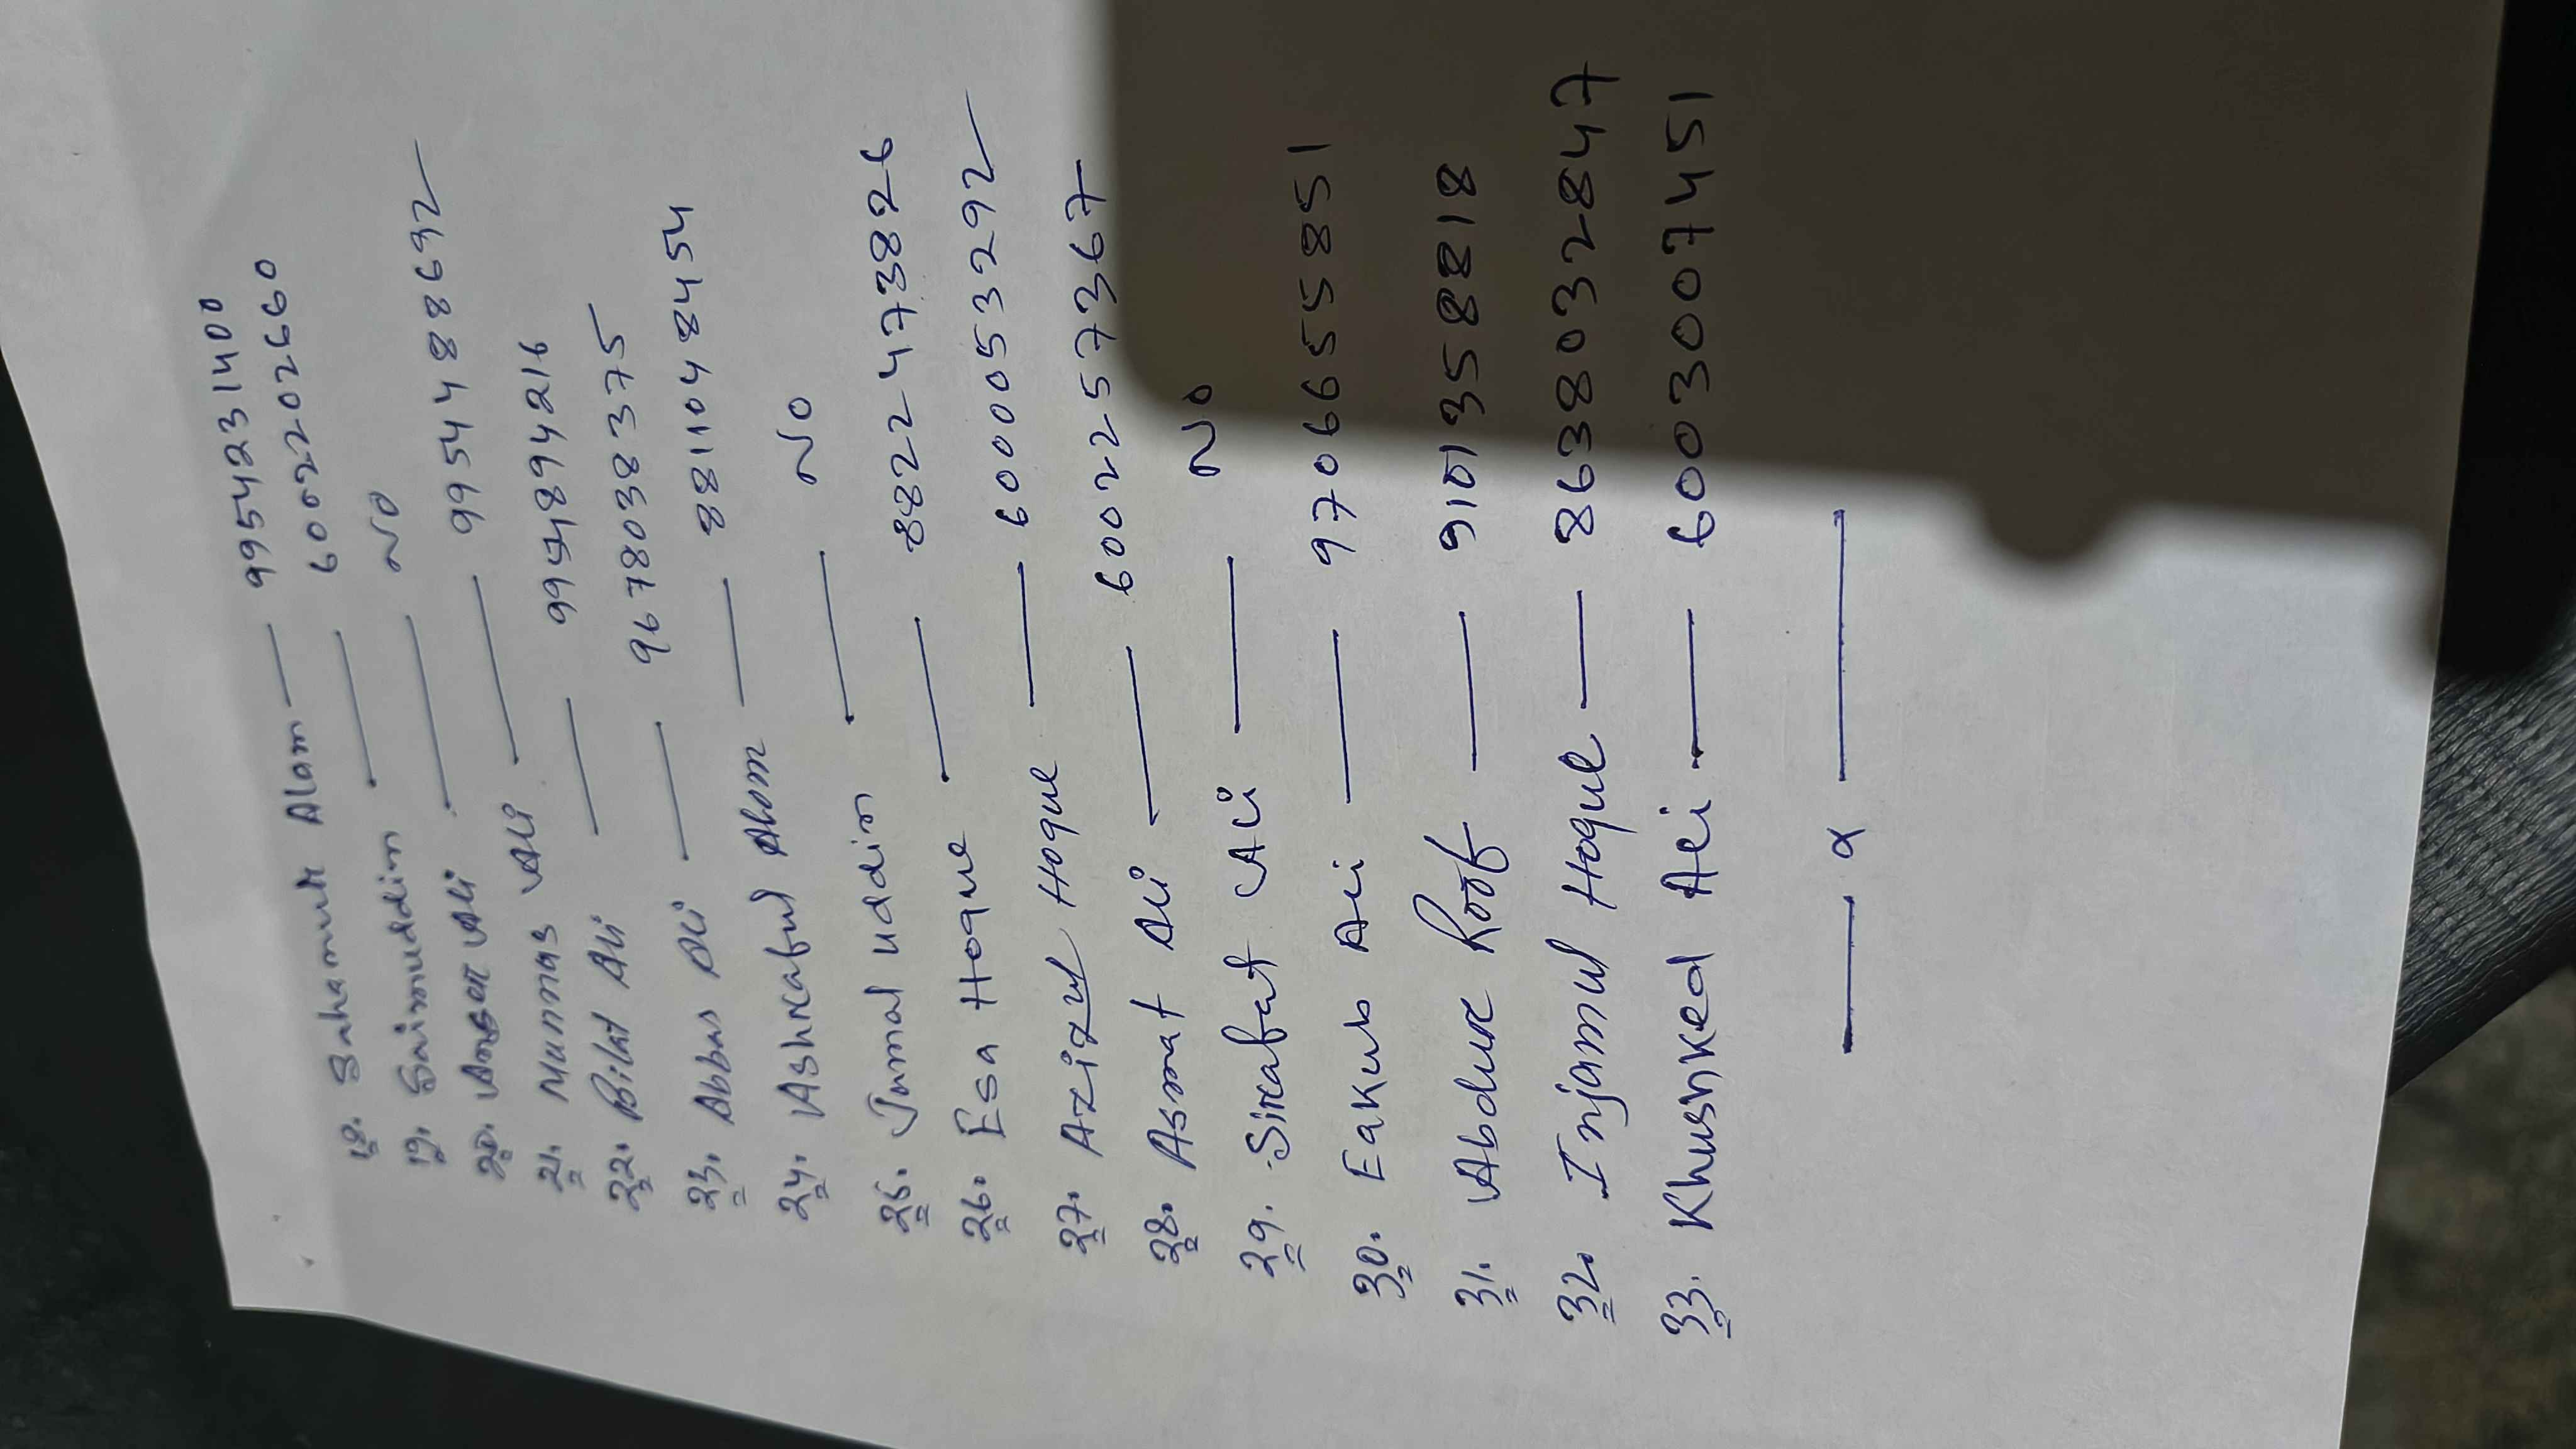 18. Sahanur Alam — 9954231400
19. Saimuddin — 6002202660
20. Ansar Ali — No
21. Munnas Ali — 9954488692
22. Bilat Ali — 9954894216
23. Abbas Ali — 9678038375
24. Ashraful Alom — 8811048454
25. Jumat uddin — No
26. Esa Hoque — 8822473826
27. Azizul Hoque — 6000053292
28. Asmat Ali — 6002257367
29. Sirafat Ali — No
30. Eakub Ali — 9706655851
31. Abdur Roof — 9101358818
32. Injamul Hoque — 8638032847
33. Khushred Ali — 6003007451
— x —